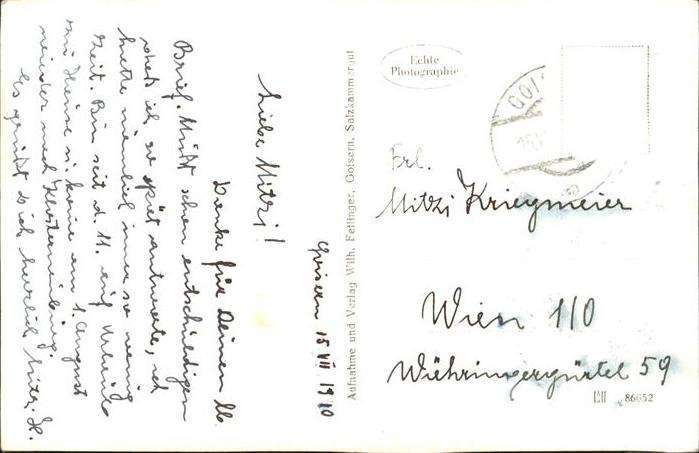 Goisern 15 VII 1910
Liebe Mitzi!
Danke für Deinen lb.
Brief. Mußt schon entschuldigen
daß ich so spät antworte, ich
hatte nämlich immer so wenig
Zeit. Bin seit d. 11. auf Urlaub
zu Hause u. komme am 1. August
wieder nach Klosterneuburg.
Es grüßt Dich herzlich Mitzi. H.
Aufnahme und Verlag Wilh. Fettinger, Goisern, Salzkammergut
Echte
Photographie
GOI
Frl.
Mitzi Kriegmeier
Wien 110
Währingergürtel 59
86652